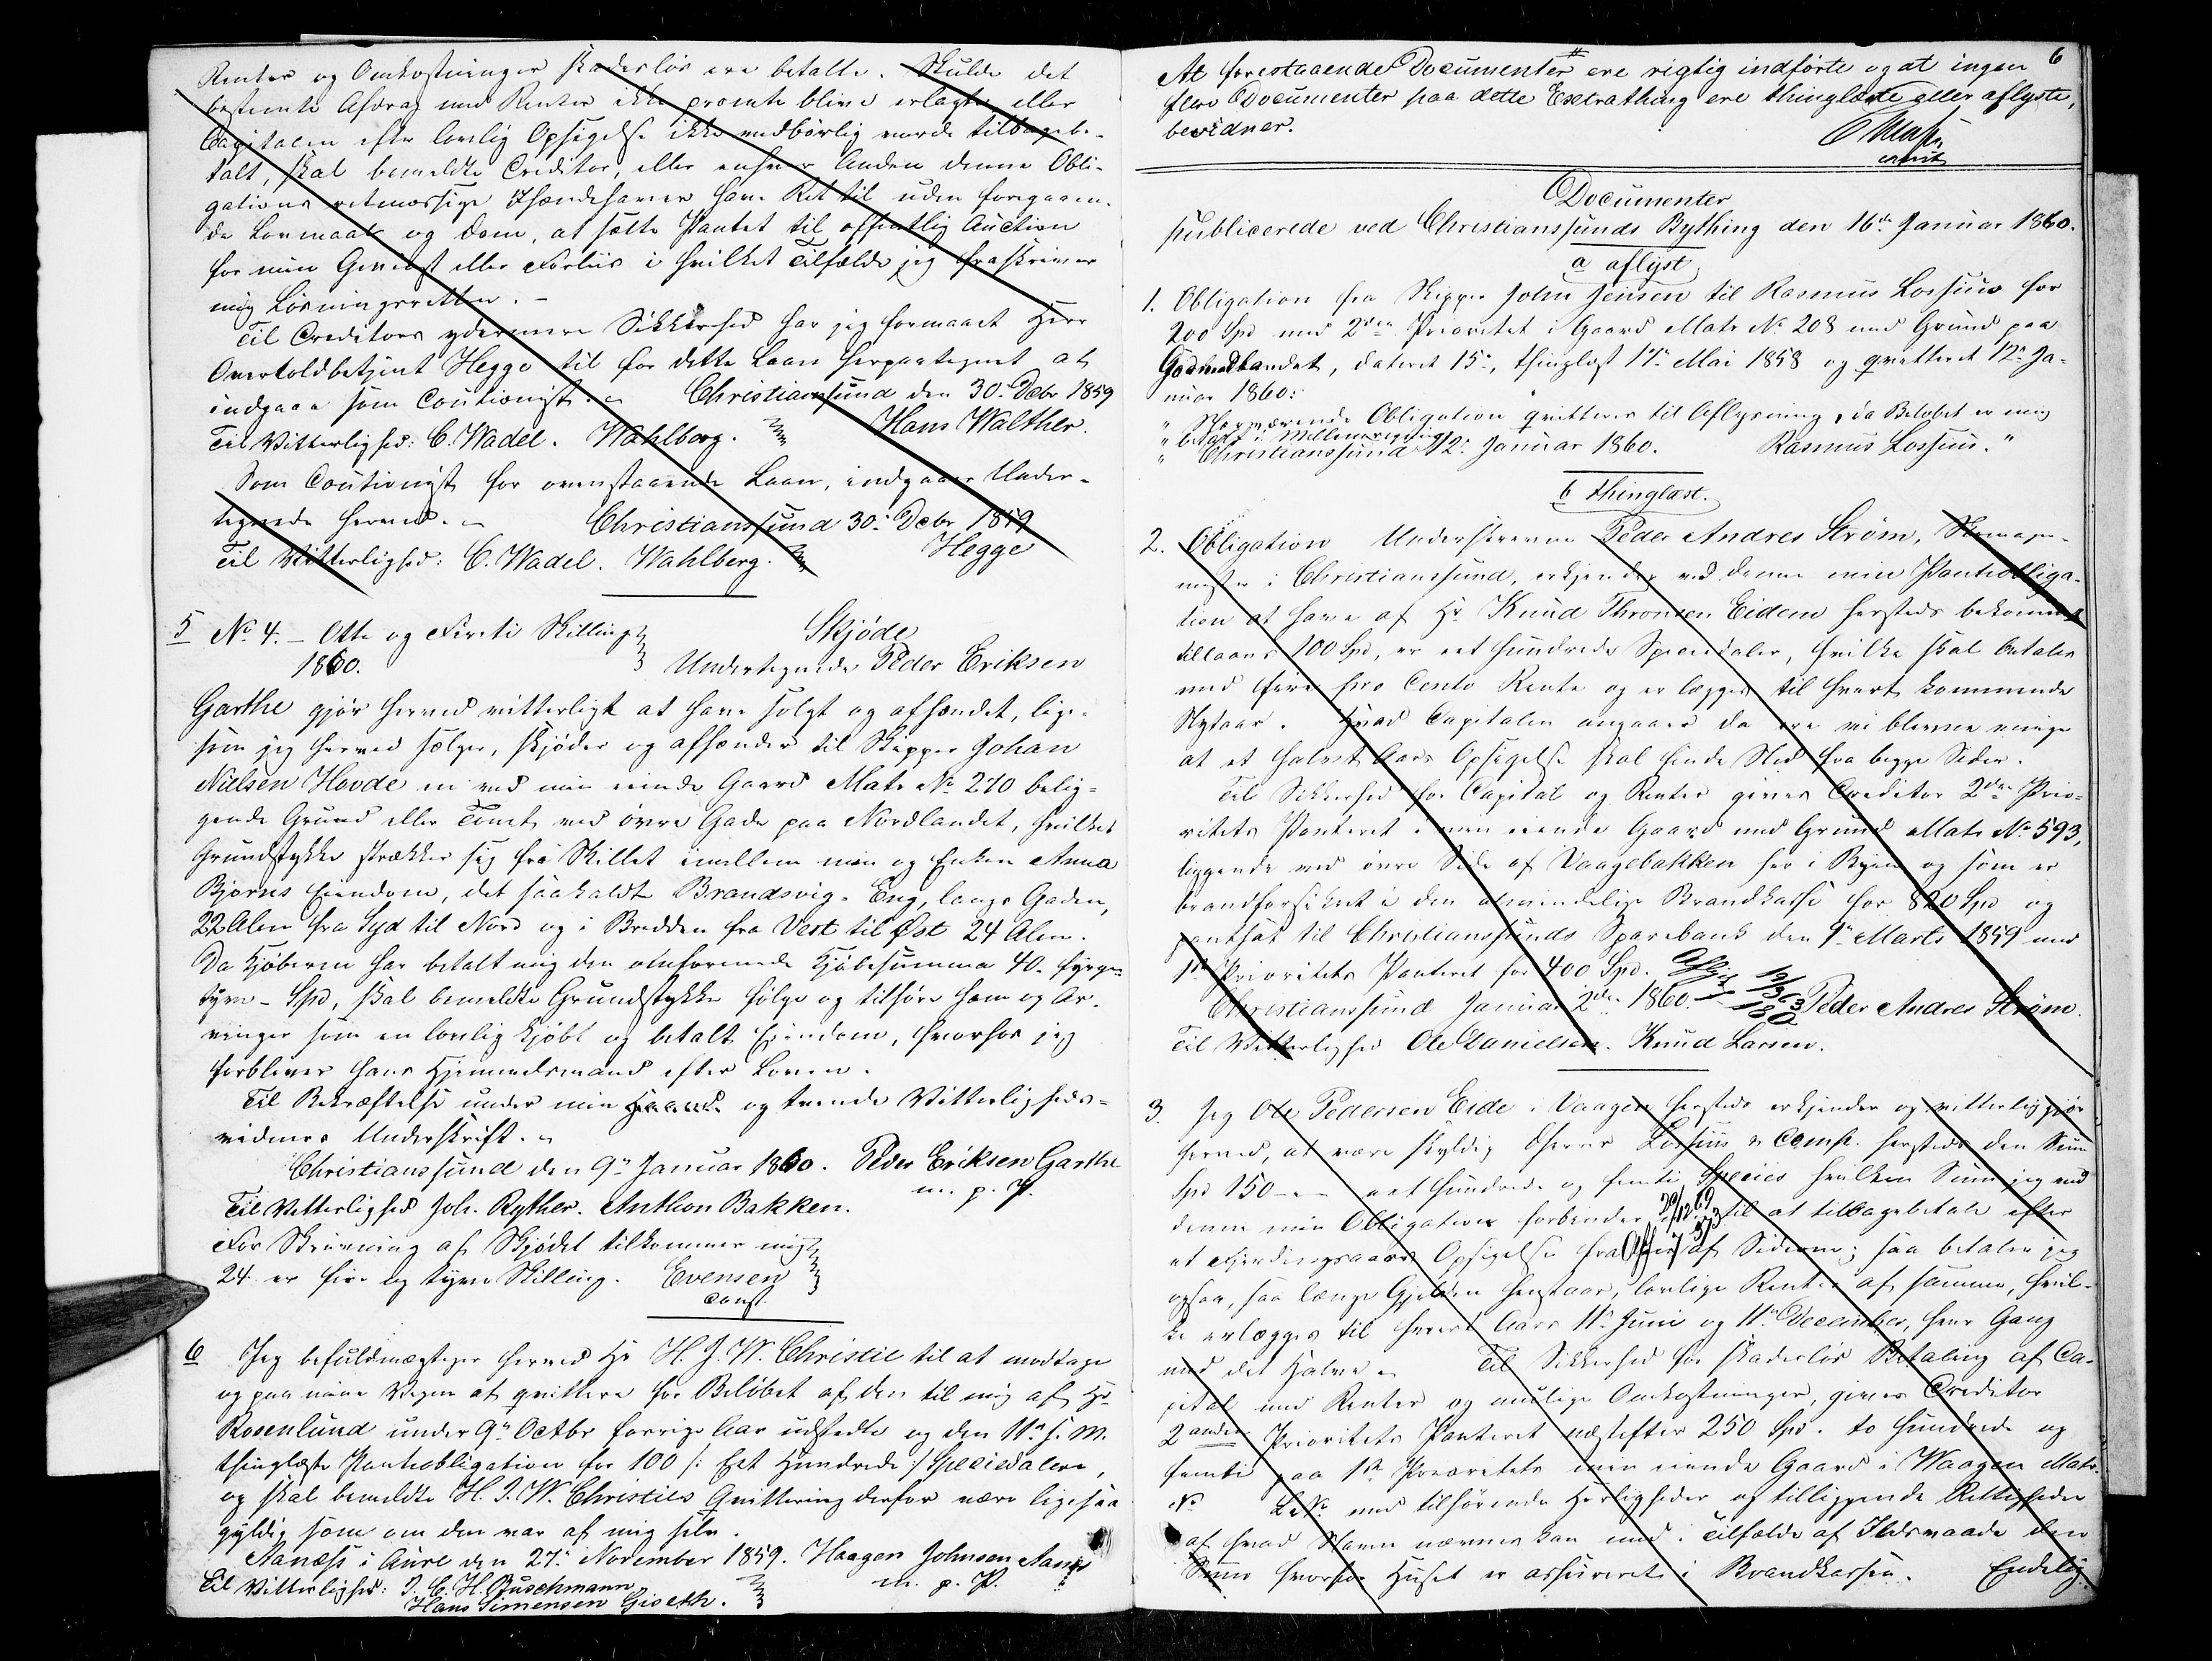 Renter og Omkostninger skadesløs ere betalte. Skulde det
bestemte Afdrag med Renter ikke promte blive erlagte eller
Capitalen efter lovlig Opsigelse ikke vedbørlig vorde tilbagebe-
talt, skal bemeldte Creditor, eller enhver Anden denne Obli-
gations retmæssige Ihændehaver have Ret til uden foregaaen-
de Lovmaal og Dom, at sætte Pantet til offentlig Auction
for min Gevinst eller Forliis i hvilket Tilfælde jeg fraskriver
mig Løsningsretten. -
Til Creditors ydermere Sikkerhed har jeg formaaet Herr
Overtoldbetjent Hegge til for dette Laan herpaategnet at
indgaae som Cautionist. - Christianssund den 30. Debr 1859
Til Vitterlighed: C. Wadel. Wahlberg. Hans Walther.
Som Cautionist for ovenstaaende Laan, indgaaer Under-
tegnede herved. - Christianssund 30. Debr 1859
Til Vitterlighed: C. Wadel. Wahlberg. Hegge
5 No 4. - Otte og Fireti Skilling Skjøde
1860. Undertegnede Peder Eriksen
Garthe gjør herved vitterligt at have solgt og afhændet, lige-
som jeg herved sælger, skjøder og afhænder til Skipper Johan
Nielsen Hovde en ved min eiende Gaard Matr No 270 belig-
gende Grund eller Tomt ved øvre Gade paa Nordlandet, hvilket
Grundstykke strækker sig fra Skillet imellem min og Enken Anna
Bjørns Eiendom, det saakaldte Brandsvig-Eng, langs Gaden,
22 Alen fra Syd til Nord og i Bredden fra Vest til Øst 24 Alen.
Da Kjøberen har betalt mig den omforenede Kjøbesumma 40. fyrge-
tyve - Spd, skal bemeldte Grundstykke følge og tilhøre ham og Ar-
vinger som en lovlig kjøbt og betalt Eiendom, hvorhos jeg
forbliver hans Hjemmelsmand efter Loven.
Til Bekræftelse under min Haand og tvende Vitterligheds-
vidners Underskrift. -
Christianssund den 9de Januar 1860. Peder Eriksen Garthe
Til Vitterlighed Joh. Ryther. Anthon Bakken. m. p. P.
For Skrivning af Skjødet tilkommer mig
24 er fire og tyve Skilling. Evensen
const.
6 Jeg befuldmægtiger herved Hr H. J. W. Christie til at modtage
og paa mine Vegne at qvittere for Beløbet af den til mig af Hr
Rosenlund under 9de Octbr forrige Aar udstedte og den 11te s. M.
thinglæste Pantobligation for 100 /: Eet Hundrede :/ Speciedalere,
og skal bemeldte H. J. W. Christies Qvittering derfor være ligesaa
gyldig som om den var af mig selv.
Aanæss i Aure den 27. November 1859. Haagen Johnsen Aanæs
Til Vitterlighed: J. C. H. Buschmann m. p. P.
Hans Simensen Giseth.
6
At forestaaende Documenter ere rigtig indførte og at ingen
flere Documenter paa dette Extrathing ere thinglæste eller aflyste,
bevidner.
const
Documenter
publicerede ved Christianssunds Bything den 16de Januar 1860.
a aflyst
1. Obligation fra Skipper John Jensen til Rasmus Lossius for
200 Spd med 2den Prioritet i Gaard Matr No 208 med Grund paa
Gomalandet, dateret 15de, thinglæst 17de Mai 1858 og qvitteret 12te Ja-
nuar 1860:
" Nærværende Obligation qvitteres til Aflysning, da Beløbet er mig
" betalt i Mellemregning
" Christianssund 12. Januar 1860. Rasmus Lossius. "
b thinglæst.
2. Obligation Underskrevne Peder Andres Strøm,
mester i Christianssund, erkjender ved denne min Pantobliga-
tion at have af Hr Knud Thronsen Eidem hersteds bekommet
tillaans 100 Spd, er eet hundrede Speciedaler, hvilke skal betales
med fire pro Cento Rente og erlægges til hvert kommende
Nytaar. Hvad Capitalen angaaer da ere vi blevne enige
at et halvt Aars Opsigelse skal finde Sted fra begge Sider.
Til Sikkerhed for Capital og Renter gives Creditor 2den Prio-
ritets Panteret i min eiende Gaard med Grund Matr No 593,
liggende ved øvre Side af Vaagebakken her i Byen og som er
brandforsikret i den almindelige Brandkasse for 820 Spd og
pantsat til Christianssunds Sparebank den 1te Marts 1859 med
1ste Prioritets Panteret for 400 Spd.
Christianssund Januar 2den 1860. Peder Andres Strøm.
Til Vitterlighed Ole Danielsen. Knud Larsen.
3. Jeg Ole Pedersen Eide i Vaagen hersteds erkjender og vitterliggjør
herved, at være skyldig Dherrer Lossius & Comp. hersteds den Sum
Spd 150 - eet hundrede og femti Species hvilken Sum jeg ved
denne min Obligation forbinder mig til at tilbagebetale efter
et Fjerdingsaars Opsigelse fra af Siderne; saa betaler jeg
ogsaa, saa længe Gjelden henstaar, lovlige Renter af samme, hvil-
ke erlægges til hvert Aars 11te Juni og 11te December, hver Gang
med det Halve - Til Sikkerhed for skadesløs Betaling af Ca-
pital med Renter og mulige Omkostninger, gives Creditor
2anden Prioritets Panteret næstefter 250 Spd. to hundrede og
femti paa 1ste Prioritets min eiende Gaard i Waagen Matr.
No LNo med tilhørende Herligheder og tilliggende Rettigheder
af hvad Navn nævnes kan med i Tilfælde af Ildsvaade den
Sum hvorfor Huset er assureret i Brandkassen. Endelig